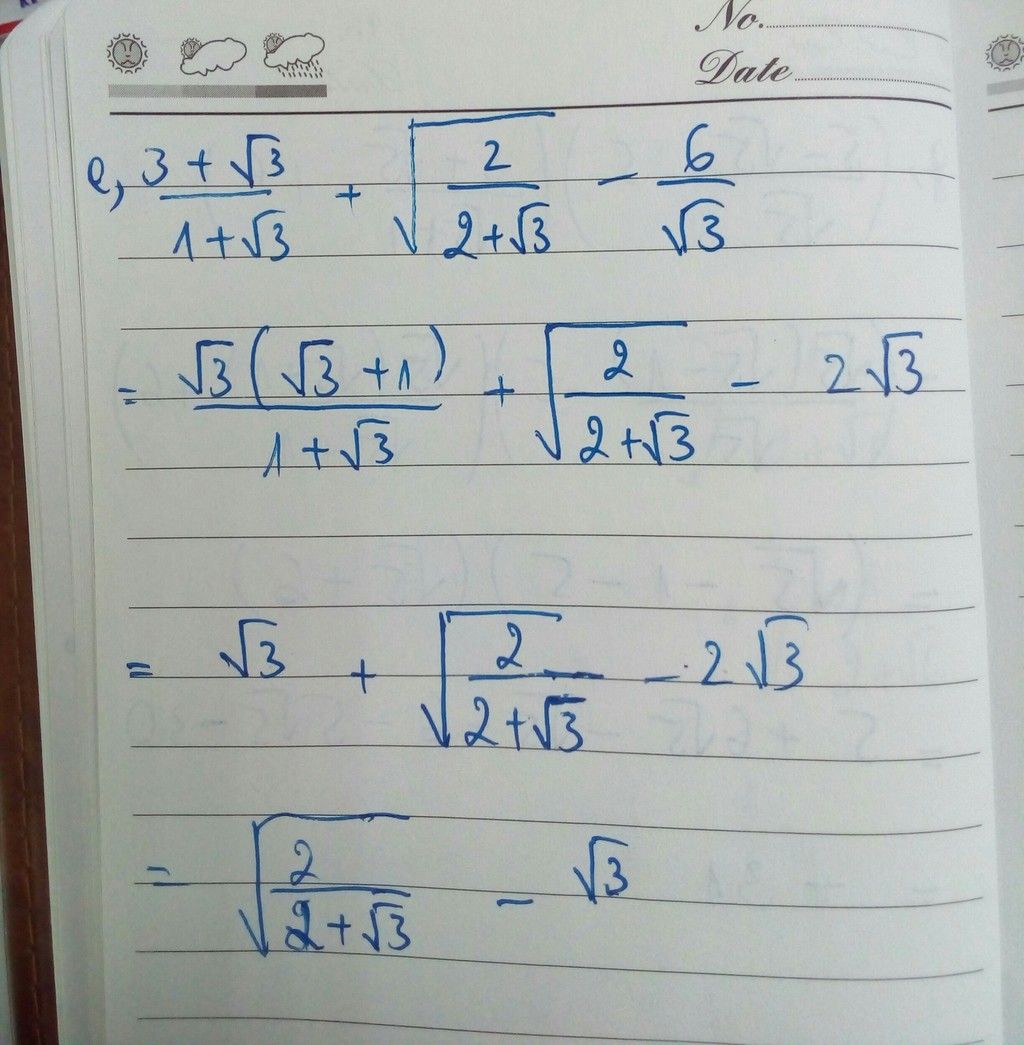 No.
Date
e, (3 + √3)/(1 + √3) + √(2/(2 + √3)) − 6/√3
= √3(√3 + 1)/(1 + √3) + √(2/(2 + √3)) − 2√3
= √3 + √(2/(2 + √3)) − 2√3
= √(2/(2 + √3)) − √3